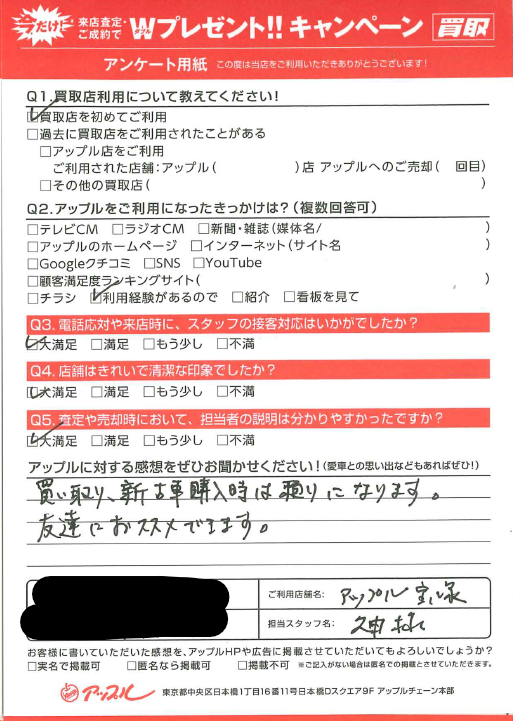 今だけ! 来店査定・ご成約で Wダブルプレゼント!! キャンペーン 買取
アンケート用紙 この度は当店をご利用いただきありがとうございます!
Q1.買取店利用について教えてください!
☑買取店を初めてご利用
□過去に買取店をご利用されたことがある
□アップル店をご利用
ご利用された店舗:アップル( )店 アップルへのご売却( 回目)
□その他の買取店( )
Q2.アップルをご利用になったきっかけは?(複数回答可)
□テレビCM □ラジオCM □新聞・雑誌(媒体名/ )
□アップルのホームページ □インターネット(サイト名 )
□Googleクチコミ □SNS □YouTube
□顧客満足度ランキングサイト( )
□チラシ ☑利用経験があるので □紹介 □看板を見て
Q3.電話応対や来店時に、スタッフの接客対応はいかがでしたか?
☑大満足 □満足 □もう少し □不満
Q4.店舗はきれいで清潔な印象でしたか?
☑大満足 □満足 □もう少し □不満
Q5.査定や売却時において、担当者の説明は分かりやすかったですか?
☑大満足 □満足 □もう少し □不満
アップルに対する感想をぜひお聞かせください!(愛車との思い出などもあればぜひ!)
買い取り、新古車購入時は頼りになります。
友達におススメできます。
ご利用店舗名: アップル
担当スタッフ名: 様
お客様に書いていただいた感想を、アップルHPや広告に掲載させていただいてもよろしいでしょうか?
□実名で掲載可 □匿名なら掲載可 □掲載不可 ※ご記入がない場合は匿名での掲載とさせていただきます。
アップル 東京都中央区日本橋1丁目16番11号日本橋Dスクエア9F アップルチェーン本部